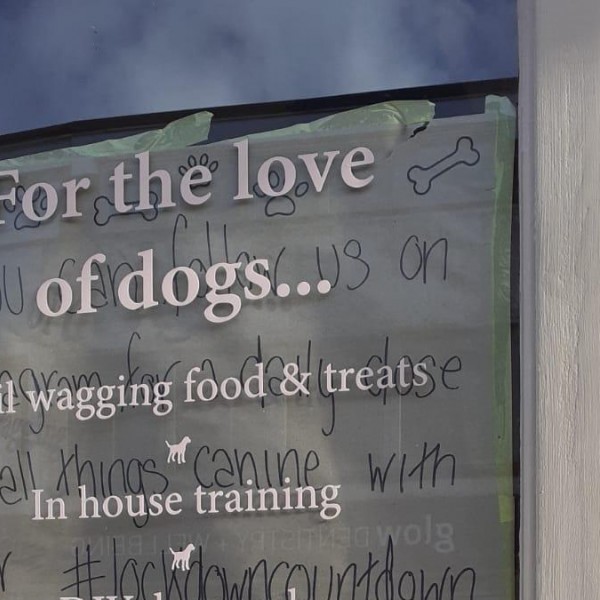 For the love
of dogs...
wagging food & treats
In house training
us on
for a daily dose
all things canine with
#lockdowncountdown
glow DENTISTRY + WELLBEING